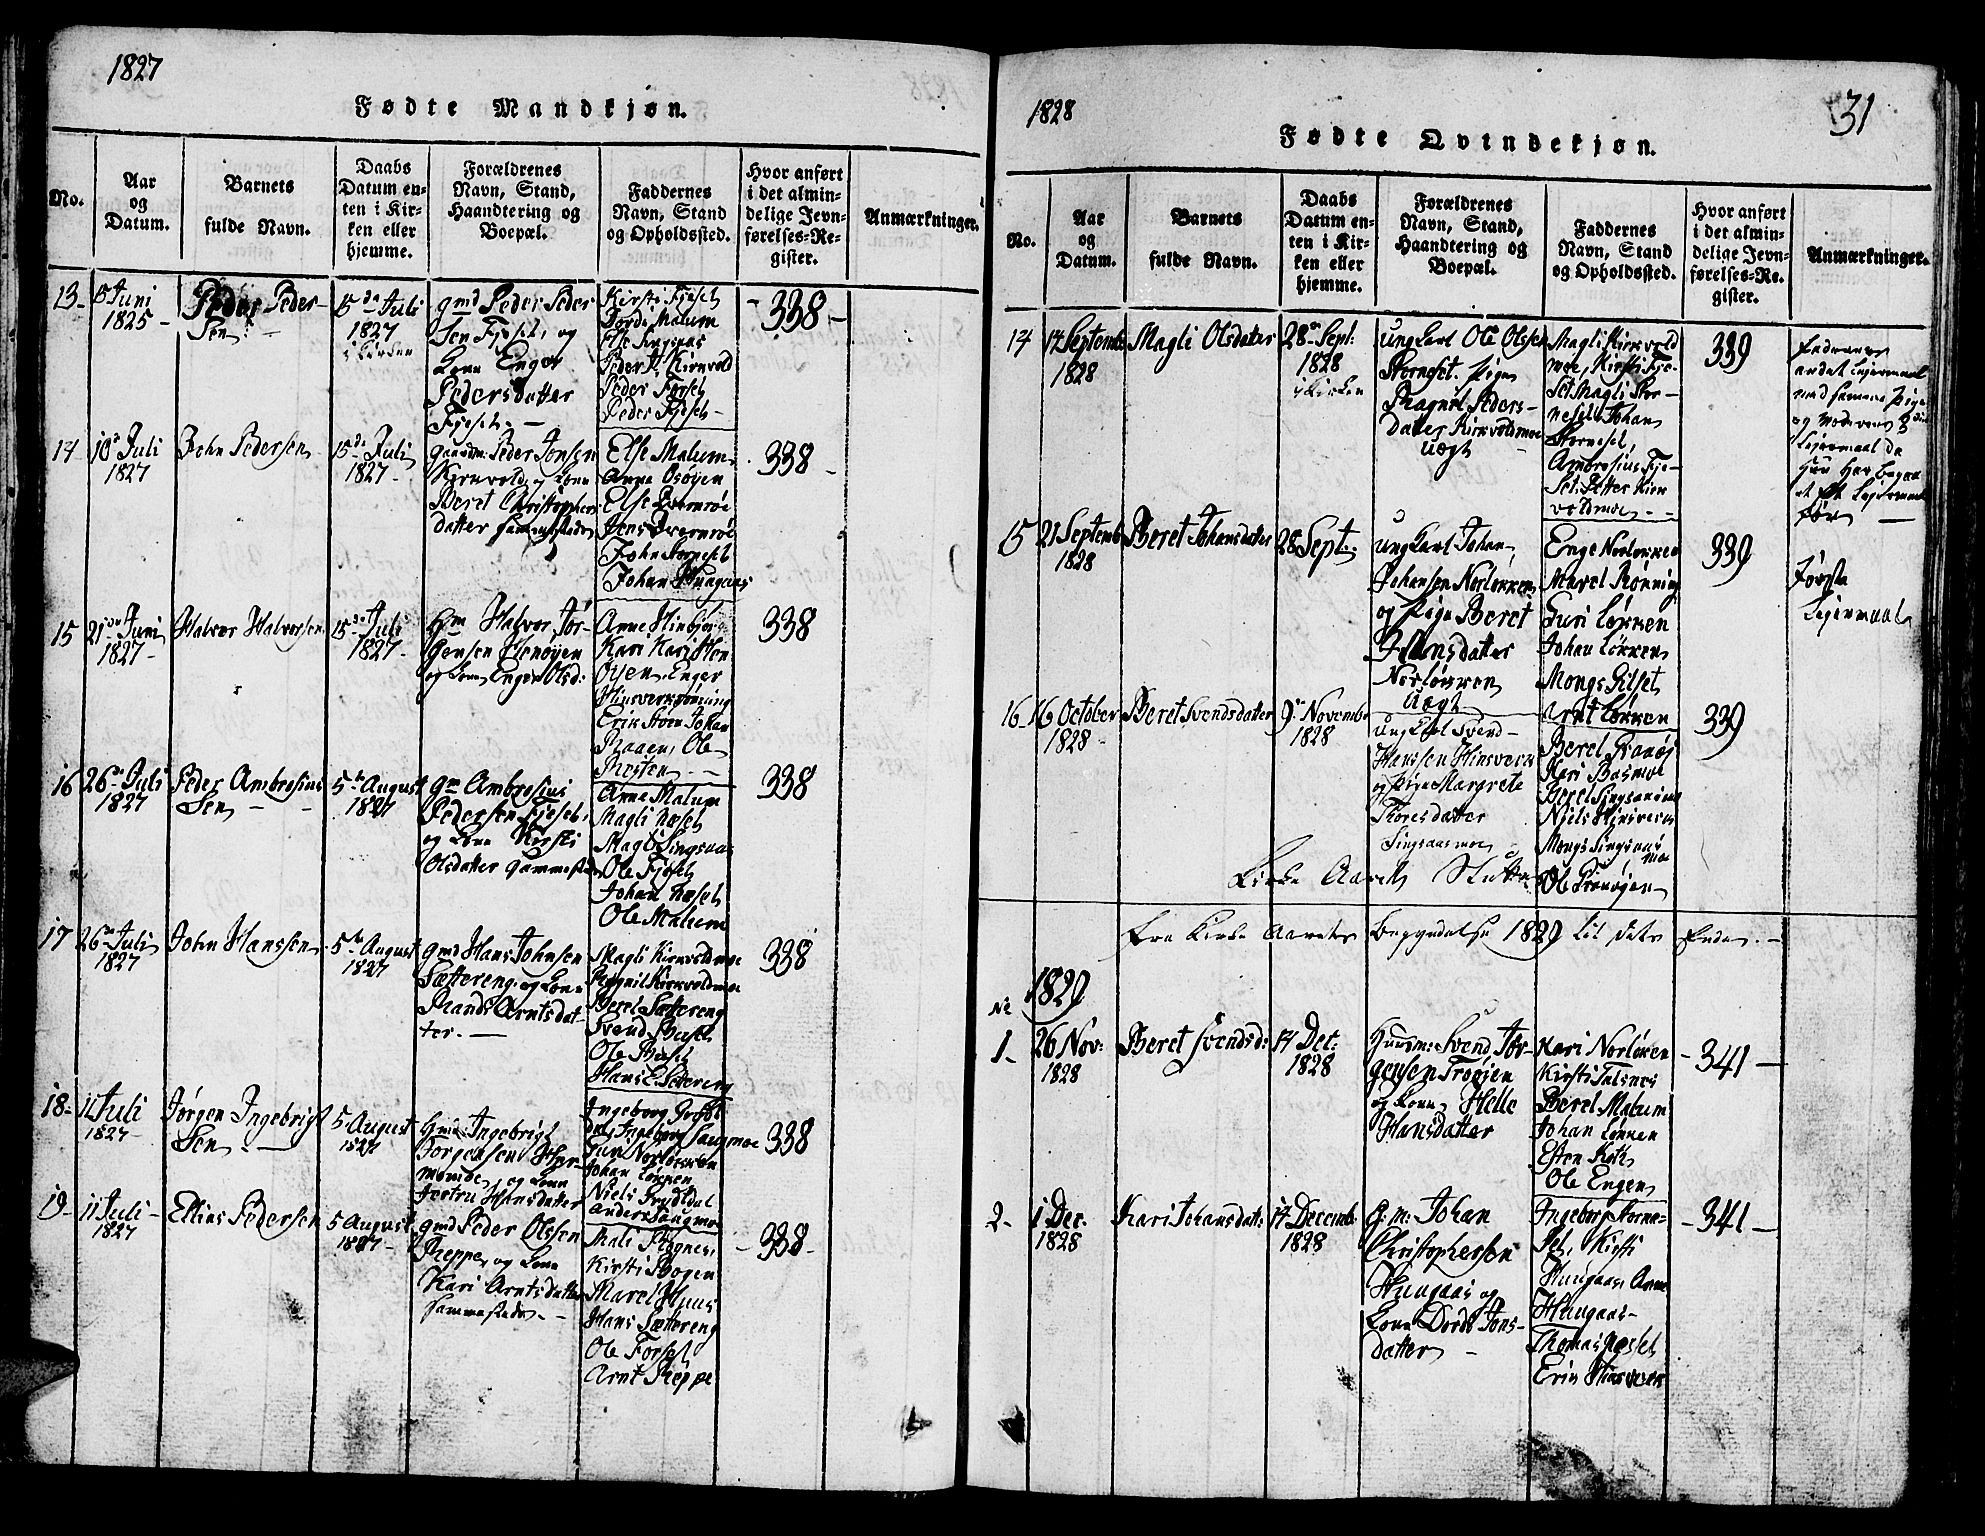 1827
Fødte Mandkjøn.
No.
Aar
og
Datum.
Barnets
fulde Navn.
Daabs
Datum en-
ten i Kir-
ken eller
hjemme.
Forældrenes
Navn, Stand,
Haandtering og
Boepæl.
Faddernes
Navn, Stand
og Opholdssted.
Hvor anført
i det almin-
delige Jevn-
førelses-Re-
gister.
Anmærkninger.
13-
Juni
1825 -
Peder Peder-
Sen. -
15de Juli
1827
i Kirken
gmd Peder Peder
Sen Fjeset, og
Kone Enger
Pedersdatter
Fjeset. -
Kirsti Fjeset
Dordi Malum
Peder H. Kirnvold
Peder Forset
Peder Fjeset -
- 338 -
14
10de Juli
1827
John Pedersen
15de Juli
1827 -
Peder Jonsen
Kirnvold, og Kone
Beret Christophers
datter Sammesteds
Else Malum
Anna Osøyen
Else
Jens
John Storneset
Johan Haugens
338 -
15
21de Juni
1827 -
Halvor Halvorsen
15de Juli
1827 -
Hm Halvor Jør-
gensen Stenøyen
og Kone Enger Olsd:
Anne
Kari Kari Sten
Øyen, Enger
Erik Støen Johan
Ole
338
16
26de Juli
1827
Peder Ambrosius
Sen - -
5te August
1827
gm Ambrosius
Pedersen Fjeset,
og Kone Kirsti
Olsdatter Sammested
Anne Malum
Magli Næset
Magli Singsaas
Ole Fjeset
Johan Næset
Ole Malum
338
17
26de Juli
1827
John Hanssen
5te August
1827
gmd Hans Johnsen
Sættereng, og Kone
Randi Arntsdat-
ter. -
Magli Kirnvoldmoe
Ragnil Kirkvoldmoe
Beret Sættereng
Svend
Ole
Hans E. Settereng
338
18-
11 Juli
1827 -
Jørgen Ingebrigt
Sen. -
5 August
1827
Hmd Ingebrigt
Jørgensen
og Kone
Hansdatter
Ingeborg
dal, Ingeborg Haugmoe
Guri Norløkken
Johan Løkken
Niels
Anders Haugmoe
338
19-
11 Juli -
1827
Ellias Pedersen
5 August
1827 -
gmd Peder Olssen
Reppe, og Kone
Kari Arntsdatter
Sammesteds -
Mali Stagnes,
Kirsti Bogen
Marel Huus
Hans Sættereng
Ole Forset
Arnt Reppe
- 338 -
1828
31
Fødte Qvindekjøn.
No.
Aar
og
Datum.
Barnets
fulde Navn.
Daabs
Datum en-
ten i Kir-
ken eller
hjemme.
Forældrenes
Navn, Stand,
Haandtering og
Boepæl.
Faddernes
Navn, Stand
og Opholdssted.
Hvor anført
i det almin-
delige Jevn-
førelses-Re-
gister.
Anmærkninger.
14
14 Septemb
1828
Magli Olsdater
28de Sept:
1828
i Kirken
ungkarl Ole Olsen
Storneset. Pigen
Ragnil Peders-
datter Kirkvoldmoe
uægt -
Magli Kirkvold
moe, Kirsti Fje-
set Magli Stor-
neset Johan
Storneset,
Ambrosius Fje-
Set. Petter Kirk
voldmoe - -
339
andet Leiermaal
med samme Pige
og Moderens
Leiermaal da
Hun Har begaa
et Leiermaal
før -
15
21 Septemb
1828
Beret Johansdater
28 Sept.
ungkarl Johan
Johansen Norløkken
og Pige Beret
Hansdatter
Norløkken
uægt
Enge Norløkken
Marel Rønning
Guri Løkken
Johan Løkken
Mongs Gilset
Arnt Løkken
339
Første
Leiermaal
16
16 October
1828
Beret Svendsdatter
9de Novemb
1828
ungkarl Svend
Hanssen Hinsvern
og Pige Margrete
Thoresdatter
Singsaasmoe
Beret
Kari Basmoe
Beret Singsaas
Niels Hinsvern
Mongs Singsaas
moe
Ole Tronøyen
339
Kirke Aarets Slutten
Fra Kirke Aarets Begyndelse 1829 til dets Ende. -
1829
No
1-
26 Nov:
1828
Beret Svendsd:
14 Dec:
1828
Huusm: Svend Jør-
gensen Trøøien
og Kone Helle
Hansdatter
Kari Norløkken
Kirsti Talsnes
Beret Malum
Johan Løkken
Esten Kotte
Ole Engen
- 341 -
2-
1 Dec.
1828
Kari Johansdat:
14 Decemb.
1828
G: m: Johan
Christophersen
Haugaas og
Kone Dordi Jons-
datter -
Ingeborg Storne-
Set, Kirsti
Haugaas Anne
Haugaas-
Thomas Næset
Erik Hinsvern
- 341 -